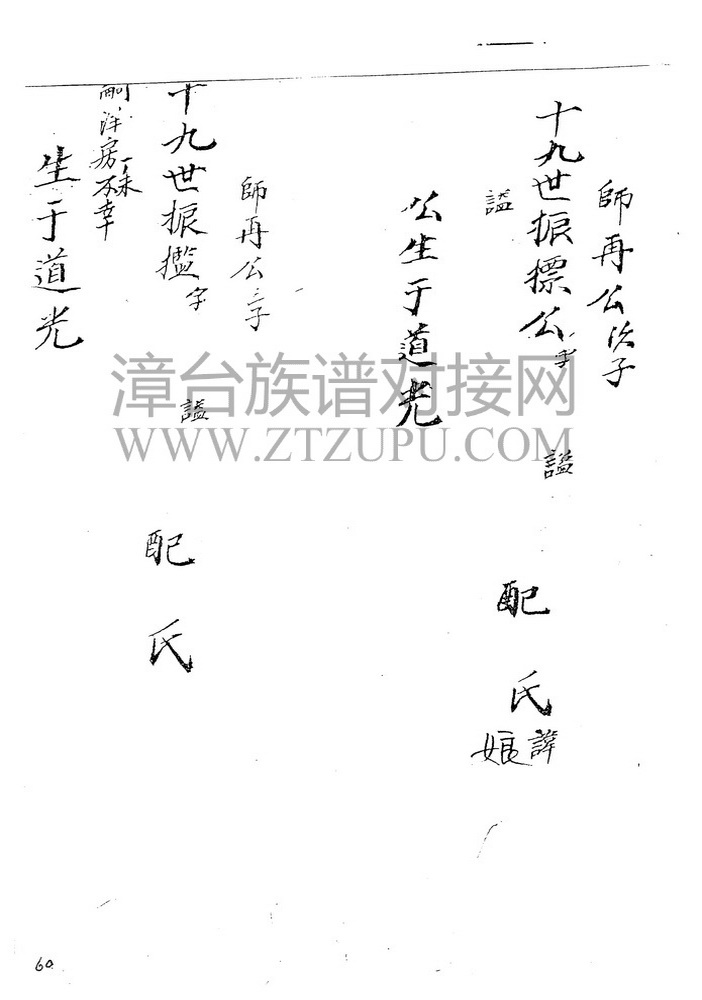 師再公次子
十九世振標公字 謚 配氏諱娘
謚
公生于道光
師再公三子
十九世振㩜字 謚 配氏
嗣洋房丁未不幸
生于道光
漳台族谱对接网
WWW.ZTZUPU.COM
60